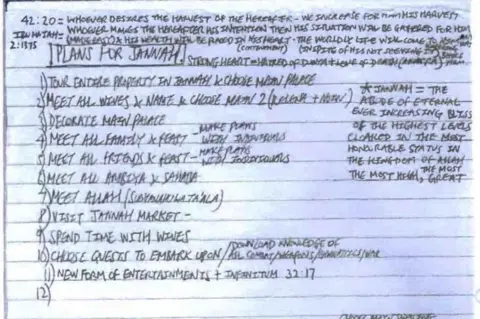 42:20 = WHOEVER DESIRES THE HARVEST OF THE HEREAFTER - WE INCREASE FOR HIM HIS HARVEST
IBN MAJAH = WHOEVER MAKES THE HEREAFTER HIS INTENTION THEN HIS SITUATION WILL BE GATHERED FOR HIM
2:1375 (MADE EASY) & HIS WEALTH WILL BE PLACED IN HIS HEART - THE WORLDLY LIFE WILL COME TO
(CONTENTMENT) (INSPITE OF HIS NOT SEEKING IT)
PLANS FOR JANNAH
STRONG HEART = HATRED OF DUNYA + LOVE OF DEATH
1) TOUR ENTIRE PROPERTY IN JANNAH & CHOOSE MAIN PALACE
2) MEET ALL WIVES & NAME & CHOOSE MAIN 2
3) DECORATE MAIN PALACE
4) MEET ALL FAMILY & FEAST - MAKE PLANS WITH INDIVIDUALS
5) MEET ALL FRIENDS & FEAST - MAKE PLANS WITH INDIVIDUALS
6) MEET ALL AMBIYA & SAHABA
7) MEET ALLAH (SUBHANUWATA'ALA)
8) VISIT JANNAH MARKET -
9) SPEND TIME WITH WIVES
10) CHOOSE QUESTS TO EMBARK UPON / DOWNLOAD KNOWLEDGE OF ALL COMBAT/WEAPONS/
11) NEW FORM OF ENTERTAINMENTS + INFINITUM 32:17
12)
* JANNAH = THE
ABODE OF ETERNAL
EVER INCREASING BLISS
OF THE HIGHEST LEVELS
CLOAKED IN THE MOST
HONOURABLE STATUS IN
THE KINGDOM OF ALLAH
THE MOST HIGH, THE MOST GREAT